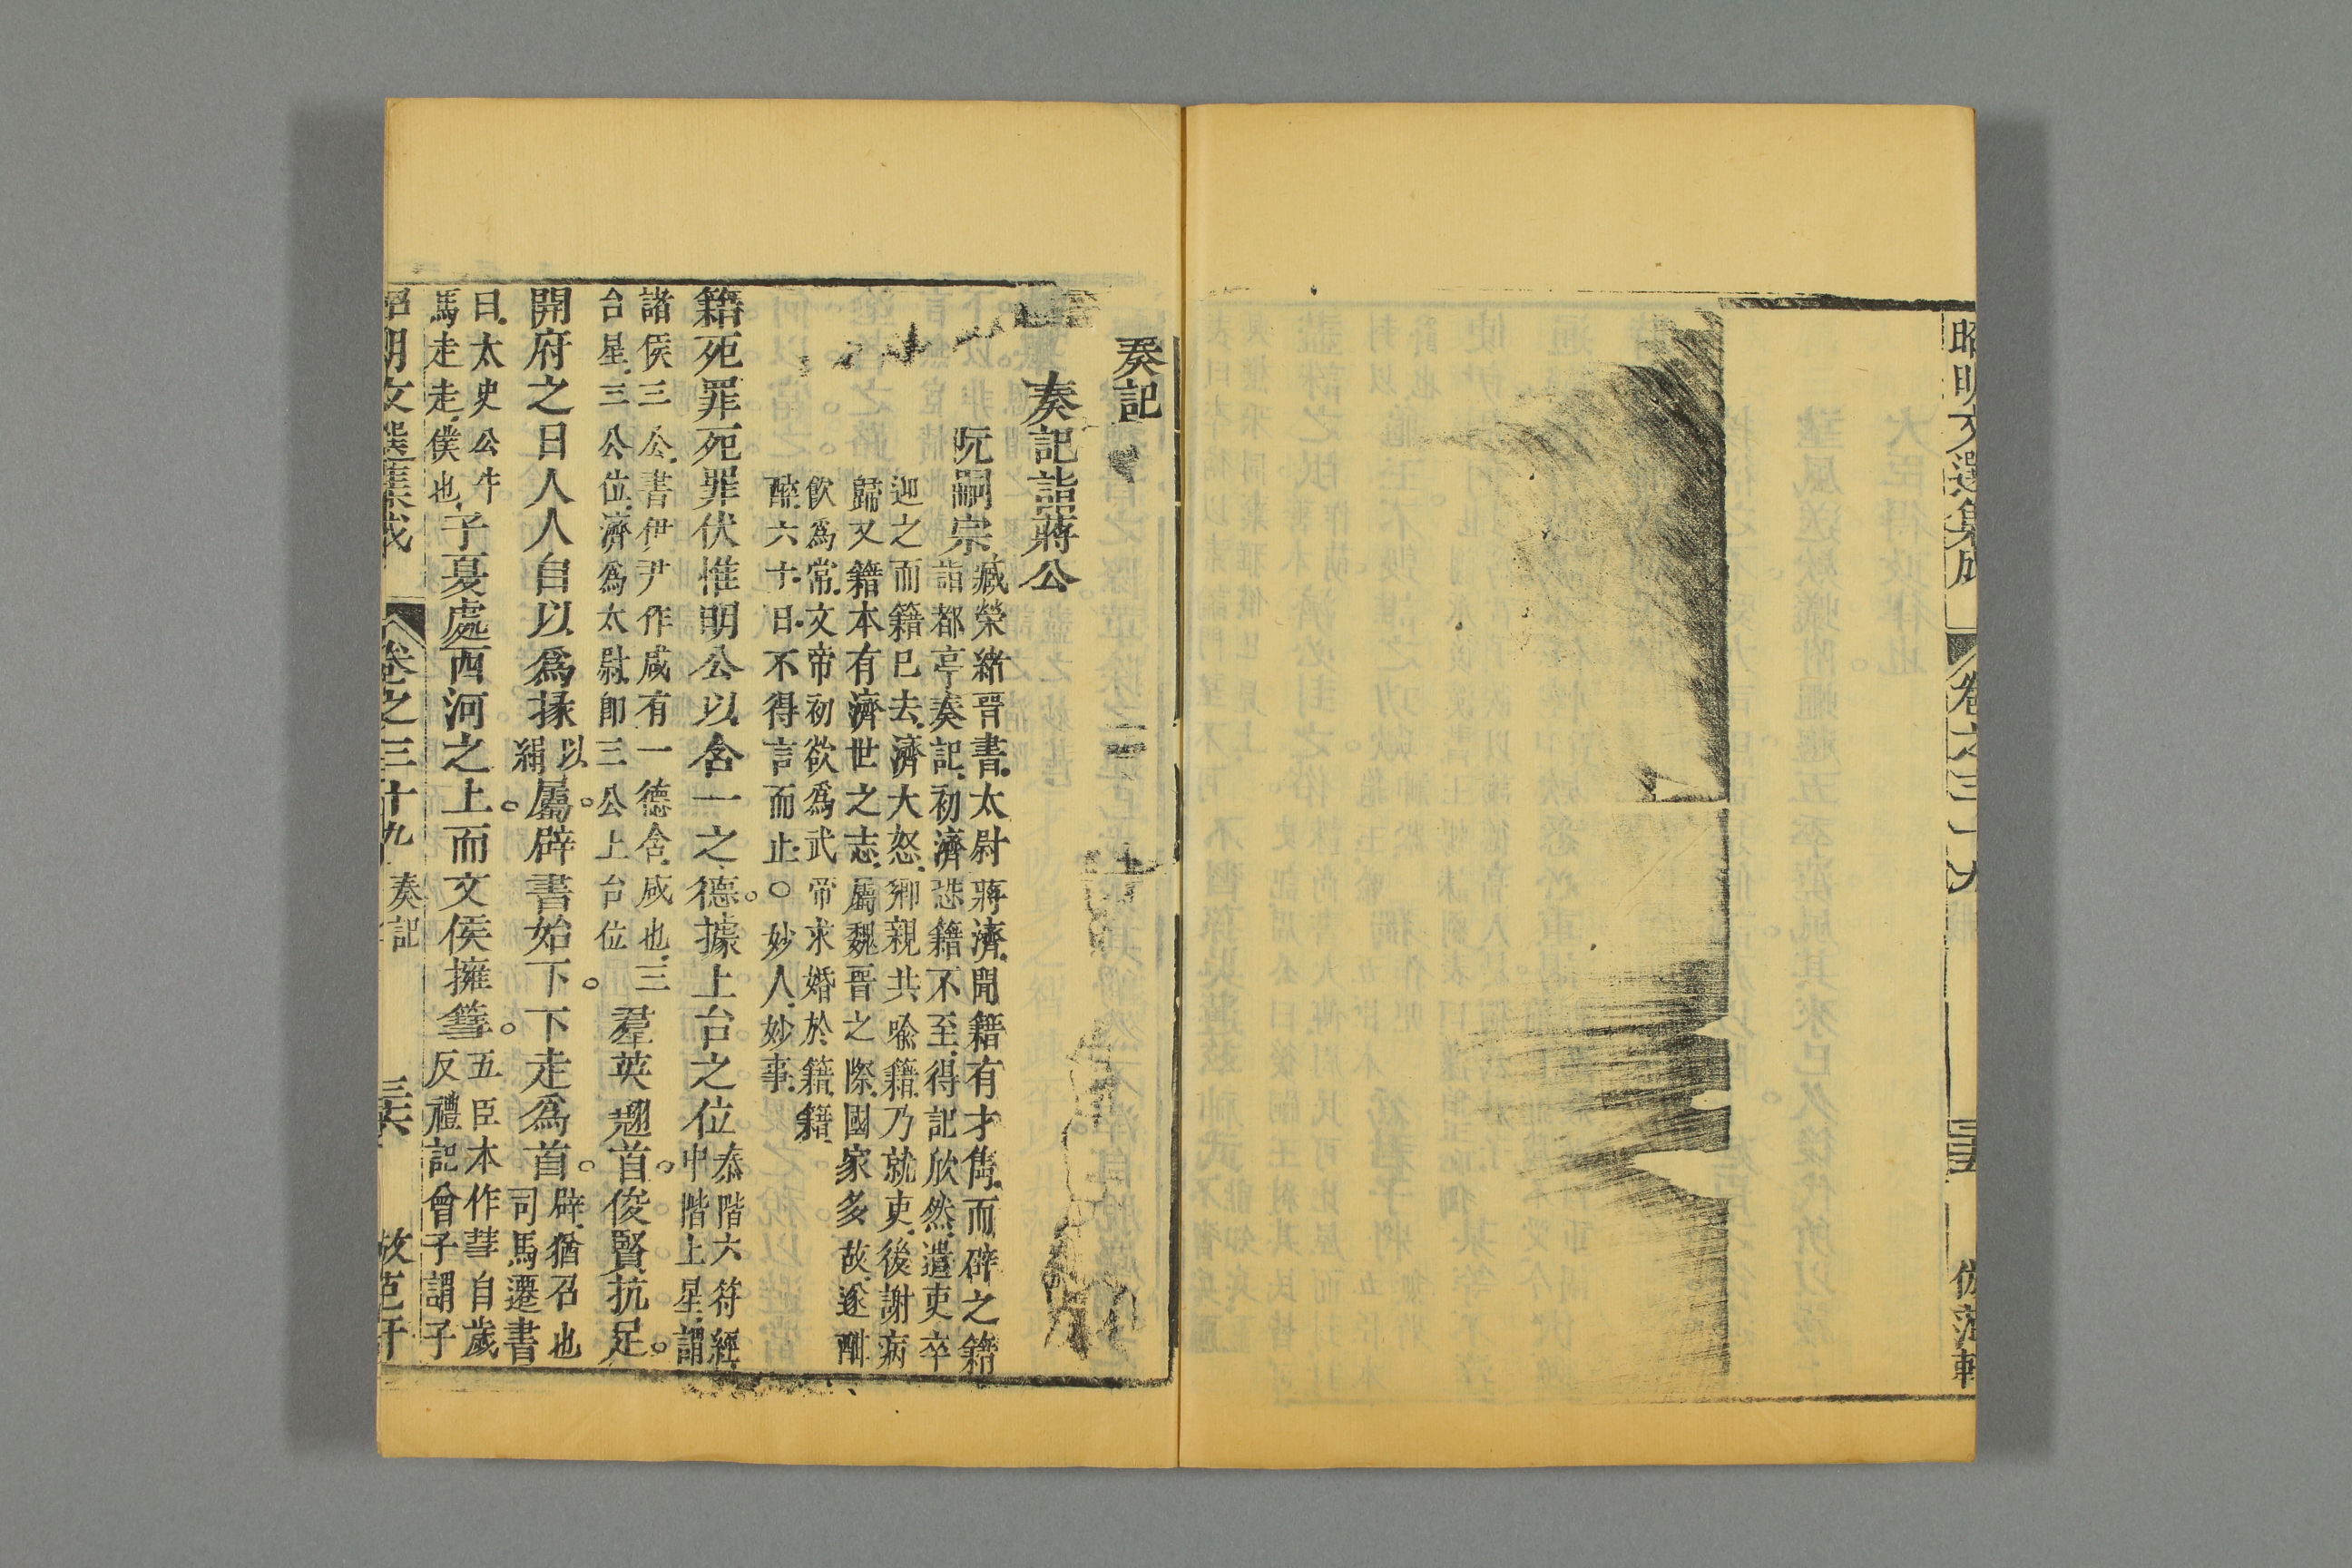 昭明文選集成 卷之三十九
奏記
奏記詣蔣公
阮嗣宗
臧榮緒晉書太尉蔣濟聞籍有才雋而辟之籍
詣都亭奏記初濟恐籍不至得記欣然遣吏卒
迎之而籍已去濟大怒鄉親共喻籍乃就吏後謝病
歸又籍本有濟世之志屬魏晉之際國家多故遂酣
飲為常文帝初欲為武帝求婚於籍籍
醉六十日不得言而止○妙人妙事
籍死罪死罪伏惟明公以含一之德據上台之位
泰階六符經
中階上星謂
諸侯三公書伊尹作咸有一德含咸也三
台星三公位濟為太尉即三公上台位
羣英翹首俊賢抗足
開府之日人人自以為掾
以
絹
屬辟書始下下走為首
辟猶召也
司馬遷書
曰太史公牛
馬走走僕也
子夏處西河之上而文侯擁篲
五臣本作彗自歲
反禮記曾子謂子
昭明文選集成 卷之三十九 奏記